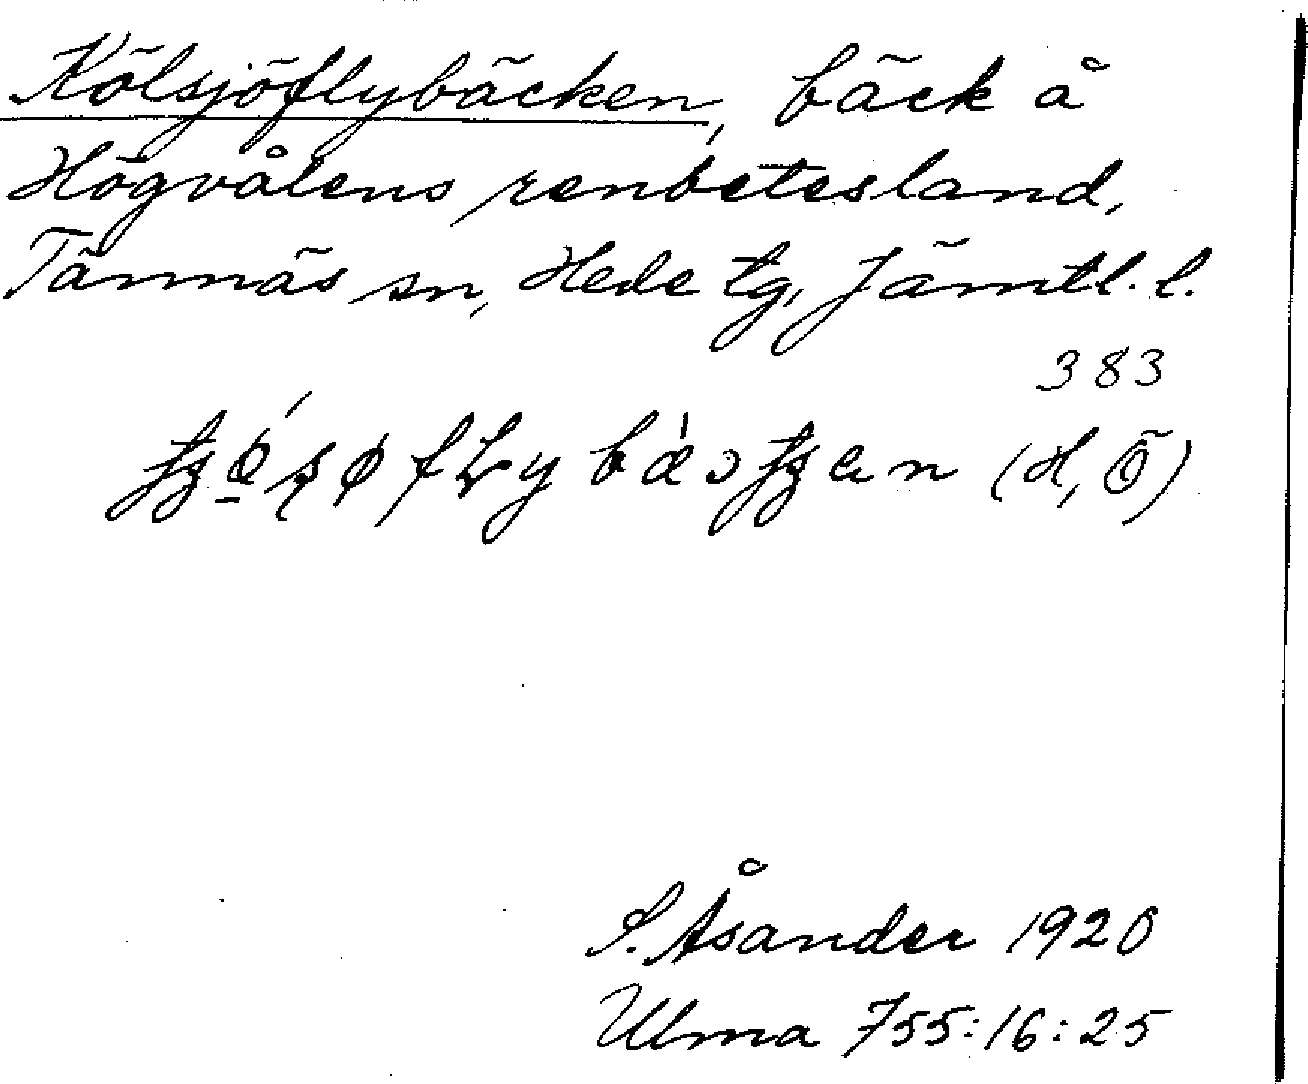 Kölsjöflybäcken, bäck å
Högvålens renbetesland,
Tännäs sn, Hede tg, Jämtl. l.
383
(H, Ö)
S. Åsander 1920
Ulma 755:16:25